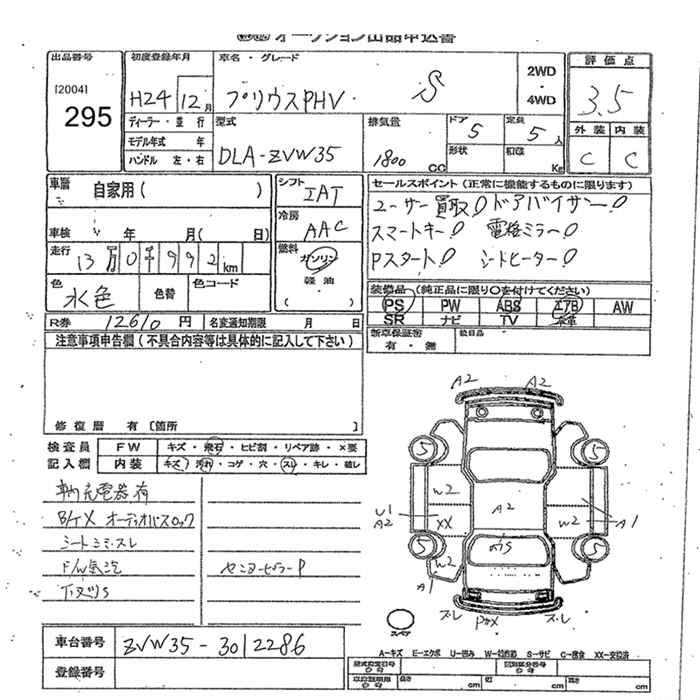 オークション出品申込書
出品番号 [2004] 295
初度登録年月 H24 12月
車名・グレード プリウスPHV S
2WD・4WD
評価点 3.5
外装 内装
C C
ディーラー・並行
モデル年式 年
ハンドル 左・右
型式 DLA-ZVW35
排気量 1800 CC
ドア 5
定員 5人
形状
積載 Kg
車暦 自家用( )
シフト IAT
冷房 AAC
燃料 ガソリン 軽油 ( )
車検 年 月( 日)
走行 13万0千992km
色 水色
色替
色コード
セールスポイント(正常に機能するものに限ります)
ユーザー買取! ドアバイザー!
スマートキー! 電格ミラー!
Pスタート! シートヒーター!
装備品(純正品に限り○を付けてください)
PS PW ABS エアB AW
SR ナビ TV 革車
新車保証書 有・無
後日品
R券 12610円
名変通知期限 月 日
注意事項申告欄(不具合内容等は具体的に記入して下さい)
修復歴 有〔箇所 〕
検査員記入欄
FW キズ・飛石・ヒビ割・リペア跡・×要
内装 キズ・汚れ・コゲ・穴・スレ・キレ・破レ
充電器有
オーディオパスロック
シートシミ・スレ
A2 A2
5 5
W2
U1 A2 XX A2 W2 A1
5 5
W2
A1
スレ スレ
スペア
A-キズ E-エクボ U-凹み W-補修跡 S-サビ C-腐食 XX-交換済
車台番号 ZVW35-3012286
登録番号
型式指定番号
類別区分番号
長さ cm 幅 cm 高さ cm